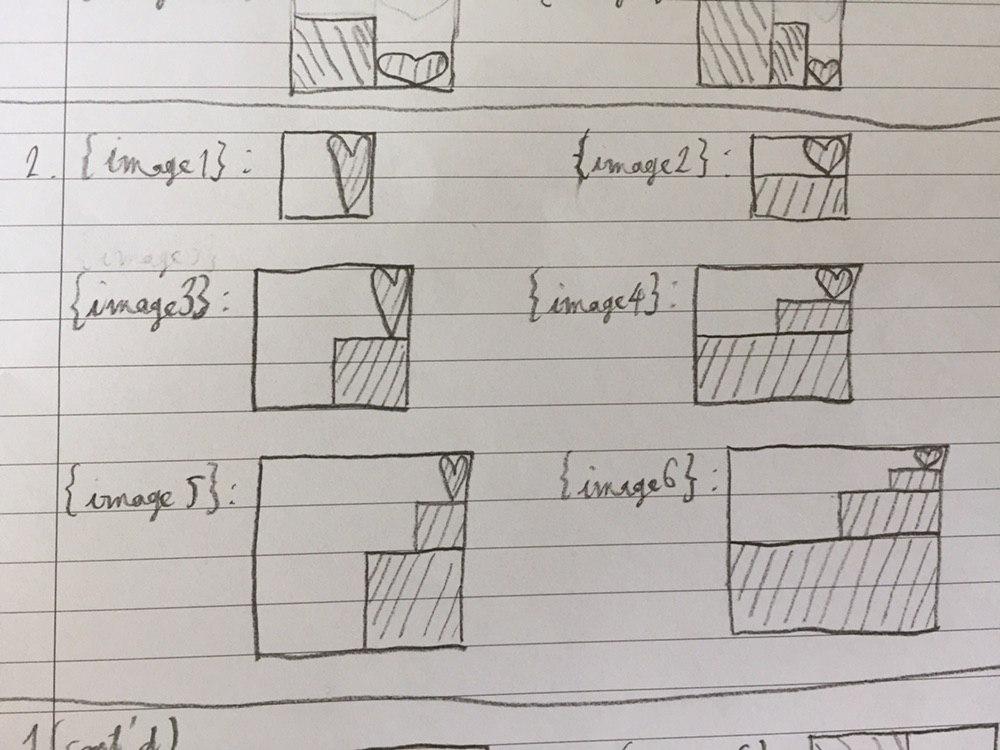 2. {image1}: {image2}:
{image3}
{image3}: {image4}:
{image5}: {image6}:
1 (cont'd)